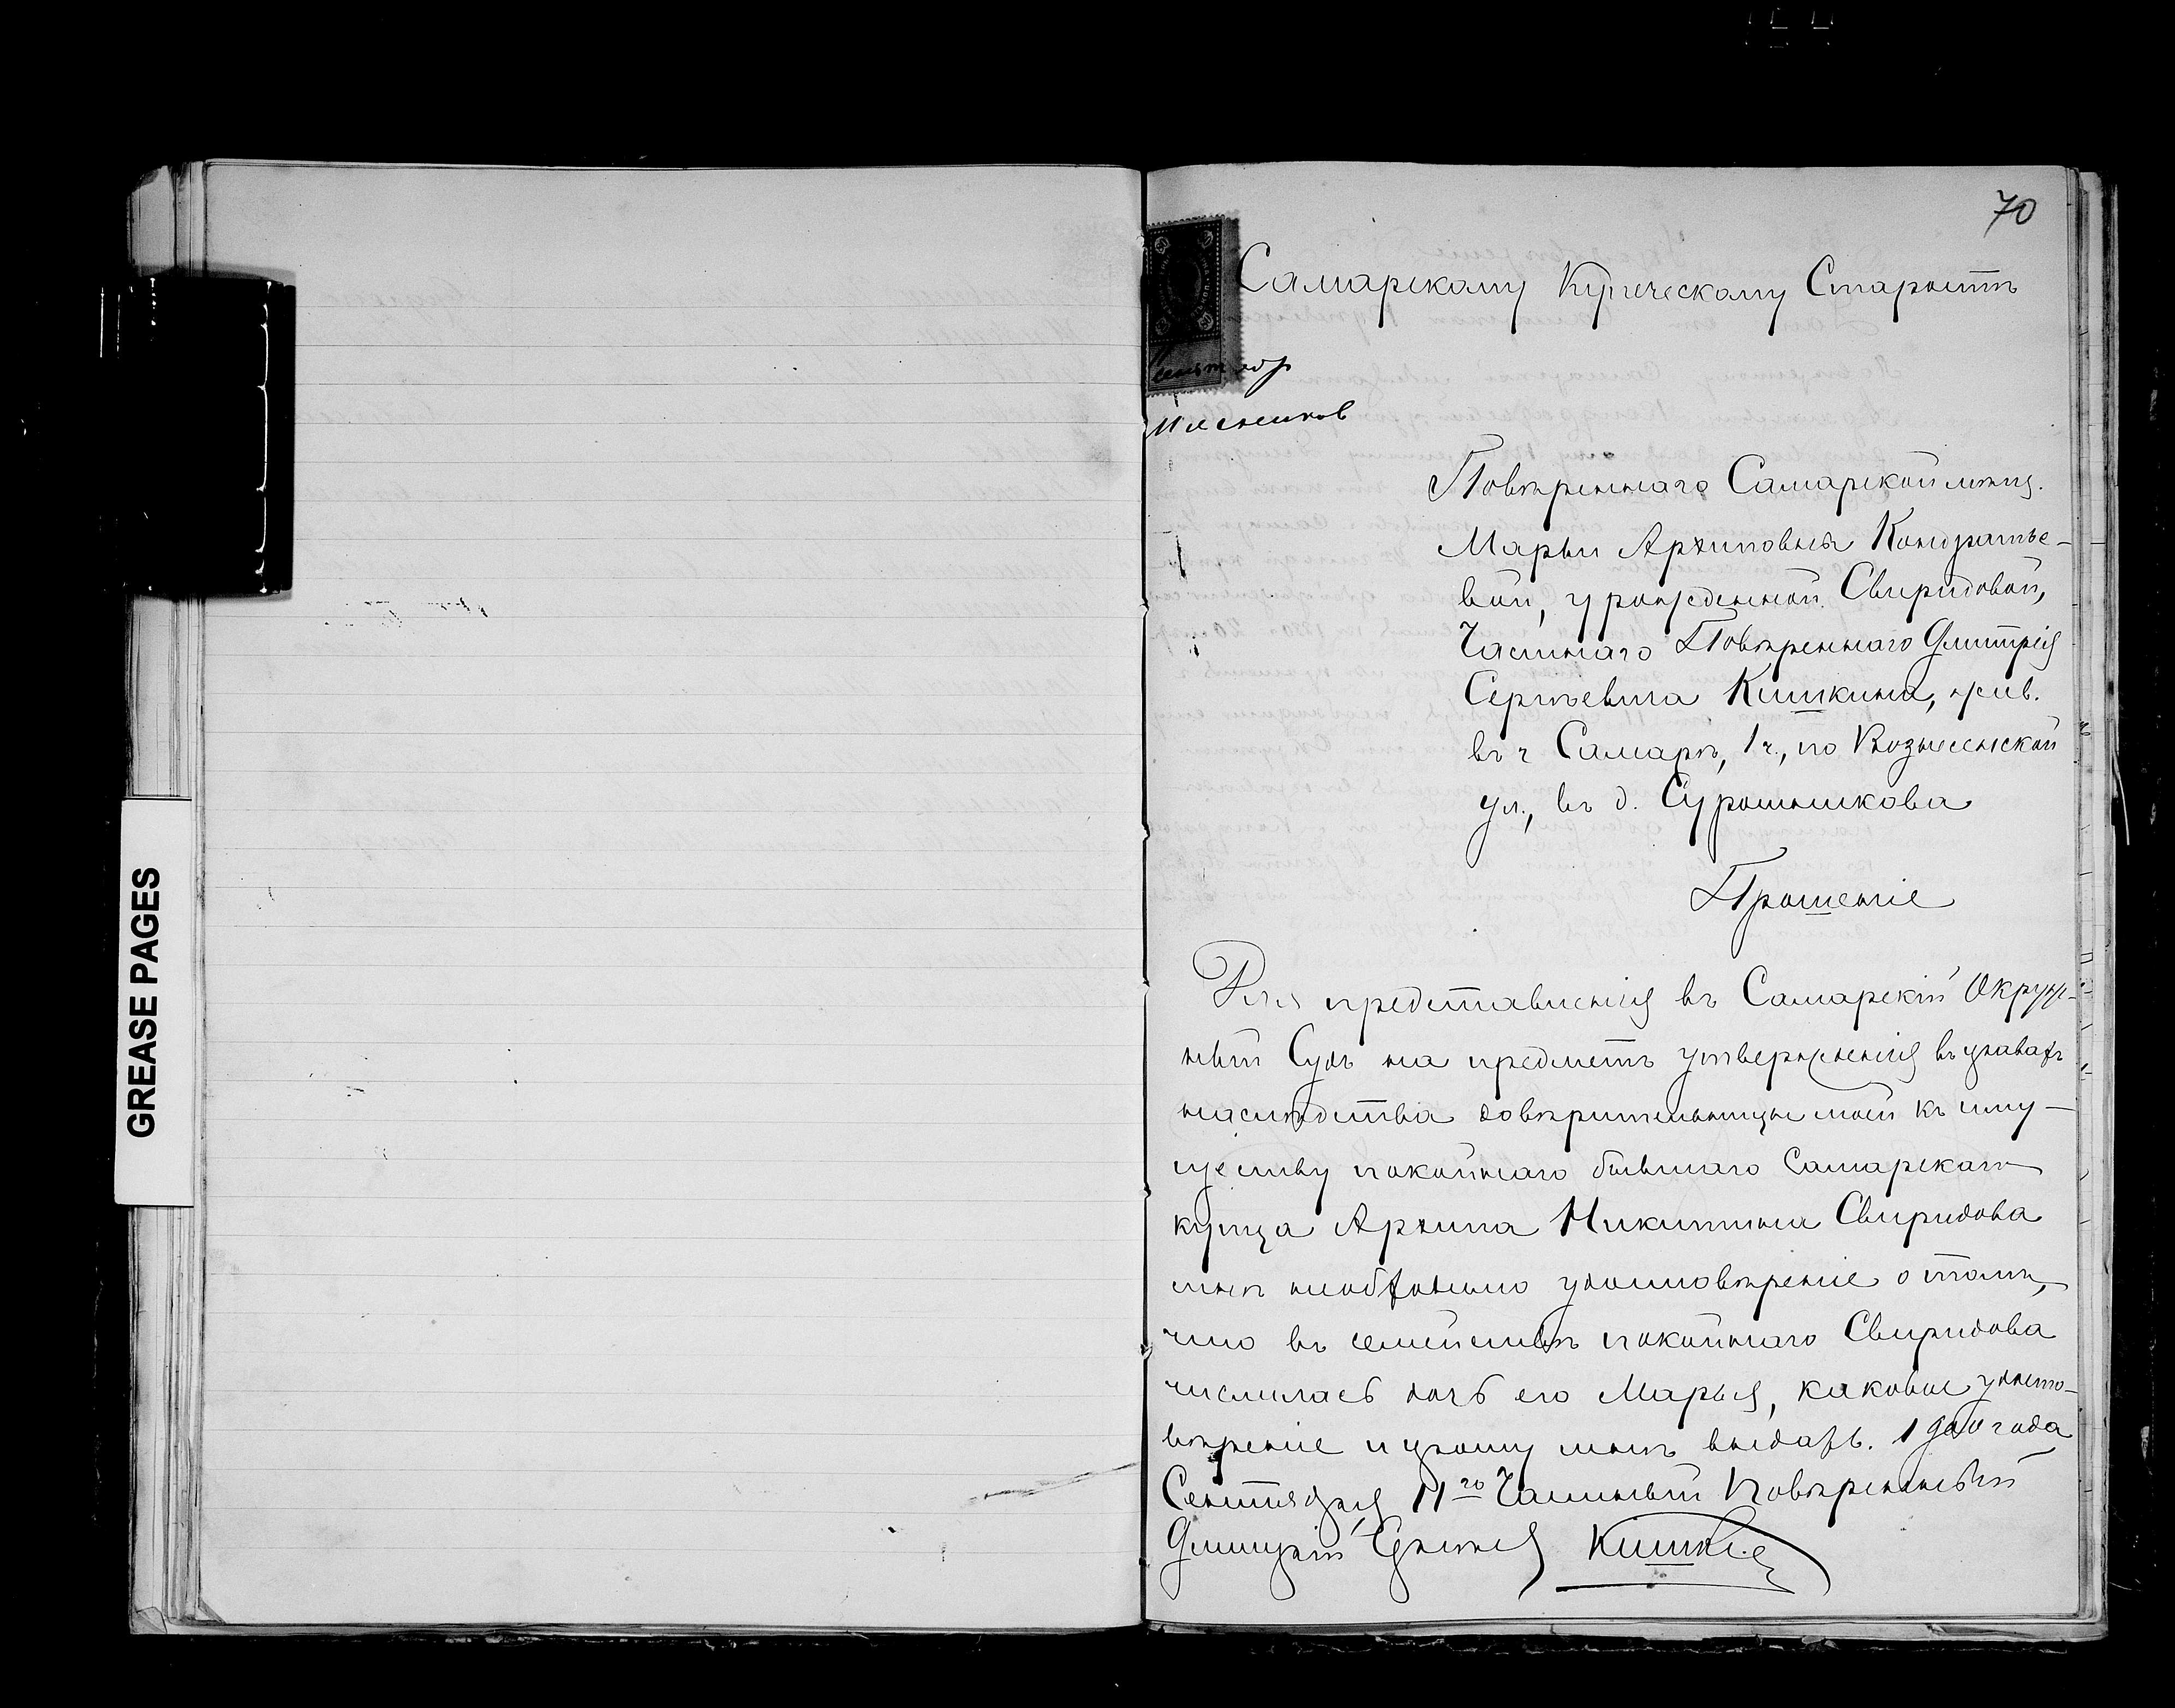 70
Самарскому Купеческому Старостѣ
Повѣреннаго Самарской мѣщ.
Марьи Архиповны Кондратье-
вой, урожденной Свиридовой,
Частнаго Повѣреннаго Дмитрія
Сергѣевича Кишкина, жив.
въ г Самарѣ, 1 ч., по Вознесенской
ул., въ д. Сурошникова
Прошеніе
Для представленія въ Самарскій Окруж-
ный Судъ на предметъ утвержденія въ правахъ
наслѣдства довѣрительницы моей къ иму-
ществу покойнаго бывшаго Самарскаго
купца Архипа Никитина Свиридова
мнѣ необходимо удостовѣреніе о томъ,
что въ семействѣ покойнаго Свиридова
числилась дочь его Марья, каковое удосто-
вѣреніе и прошу мнѣ выдать. 1890 года
Сентября 11го Частный Повѣренный
Дмитрій Сергѣевъ Кишкинъ
GREASE PAGES